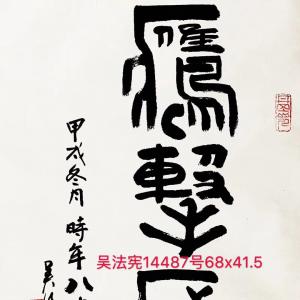 鹰击
甲戌冬月 時年八
吴法宪14487号68x41.5